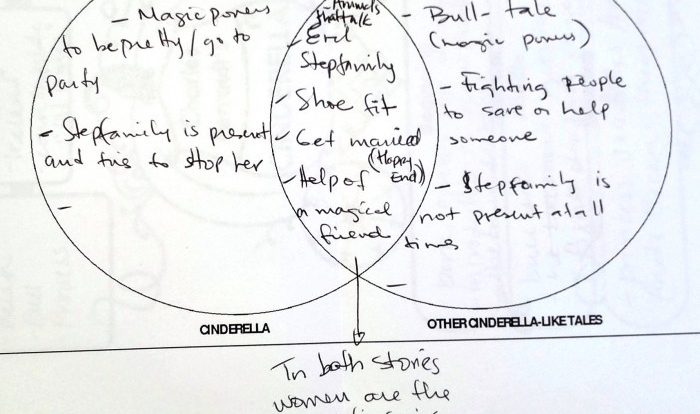 - Magic powers
to be pretty / go to
party
- Stepfamily is present
and tries to stop her
-
- Animals
that talk
- Evil
Stepfamily
- Shoe fit
- Get married
(Happy
End)
- Help of
a magical
friend
- Bull-tale
(magic powers)
- Fighting people
to save or help
someone
- Stepfamily is
not present at all
times
-
CINDERELLA
OTHER CINDERELLA-LIKE TALES
In both stories
women are the